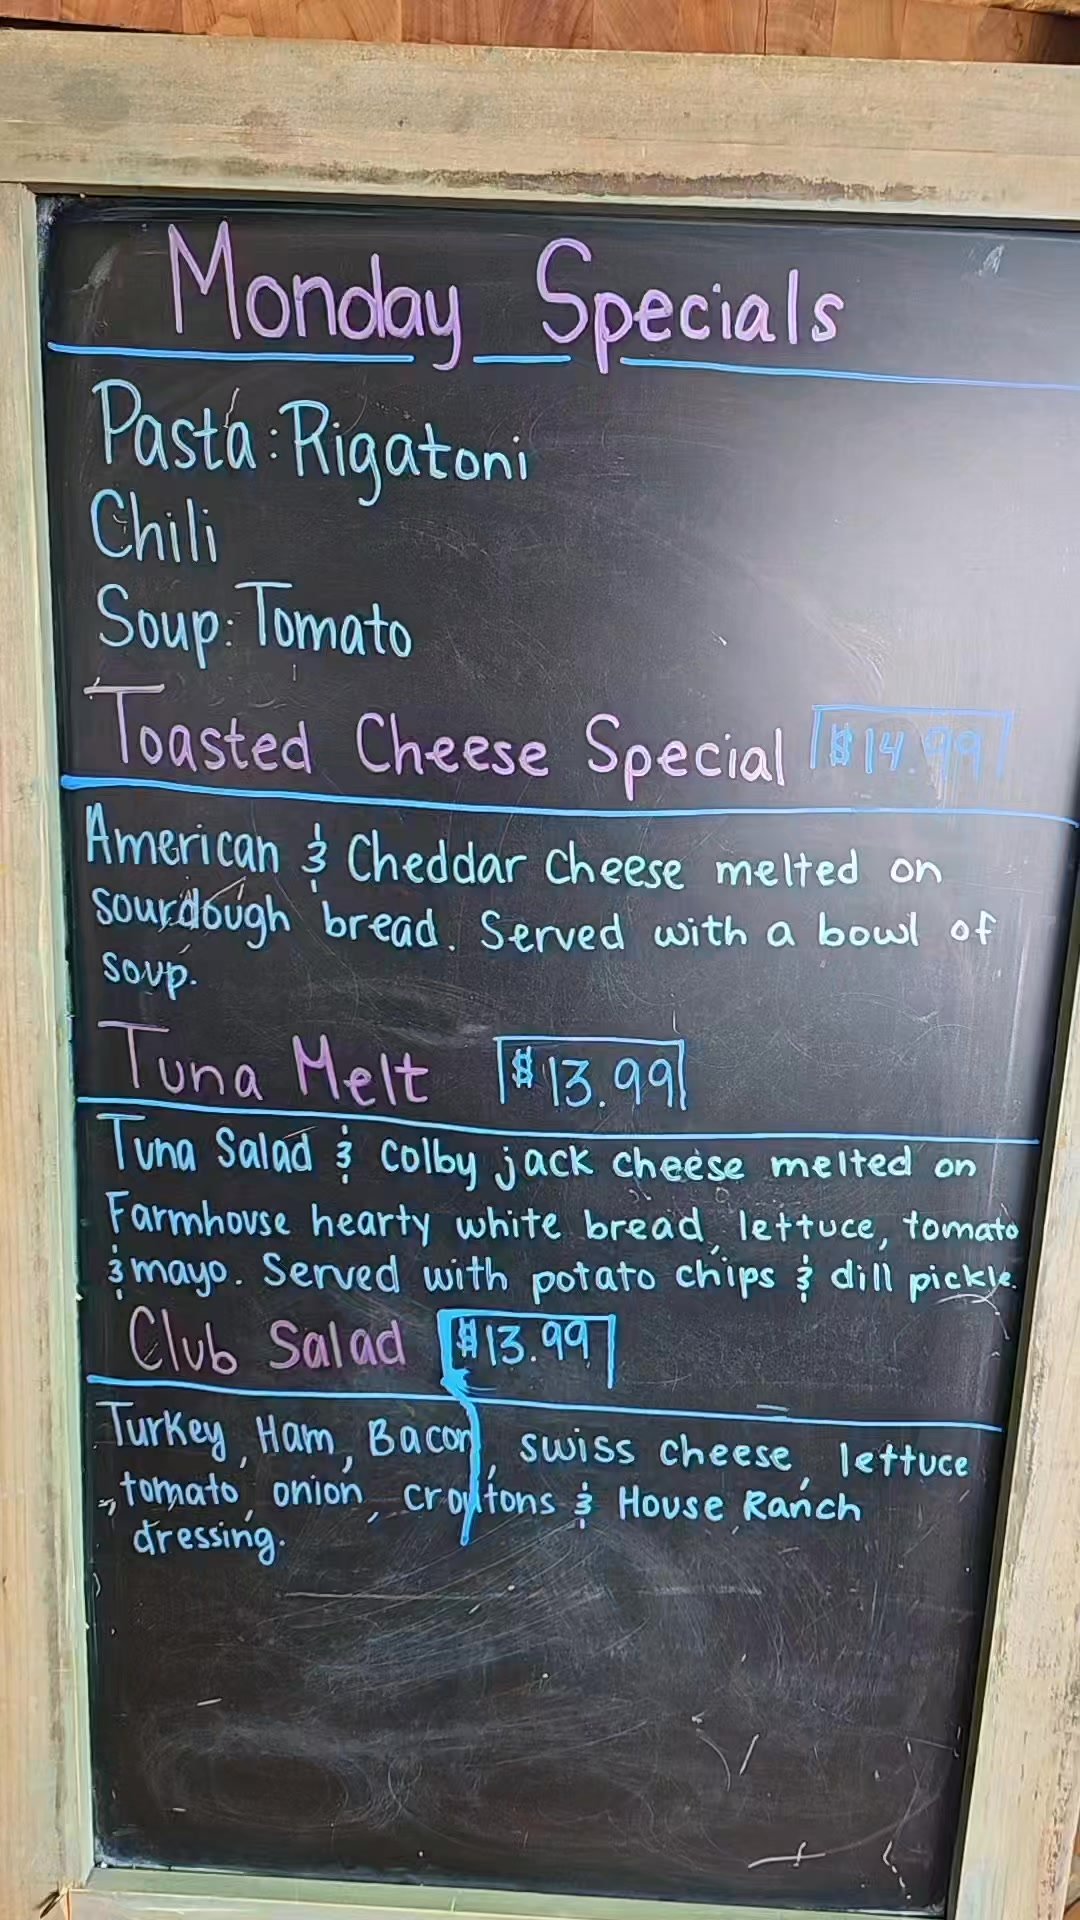 Monday Specials
Pasta: Rigatoni
Chili
Soup: Tomato
Toasted Cheese Special $14.99
American & Cheddar Cheese melted on
sourdough bread. Served with a bowl of
soup.
Tuna Melt $13.99
Tuna Salad & Colby jack cheese melted on
Farmhouse hearty white bread, lettuce, tomato
& mayo. Served with potato chips & dill pickle.
Club Salad $13.99
Turkey, Ham, Bacon, swiss cheese, lettuce
, tomato, onion, croutons & House Ranch
dressing.